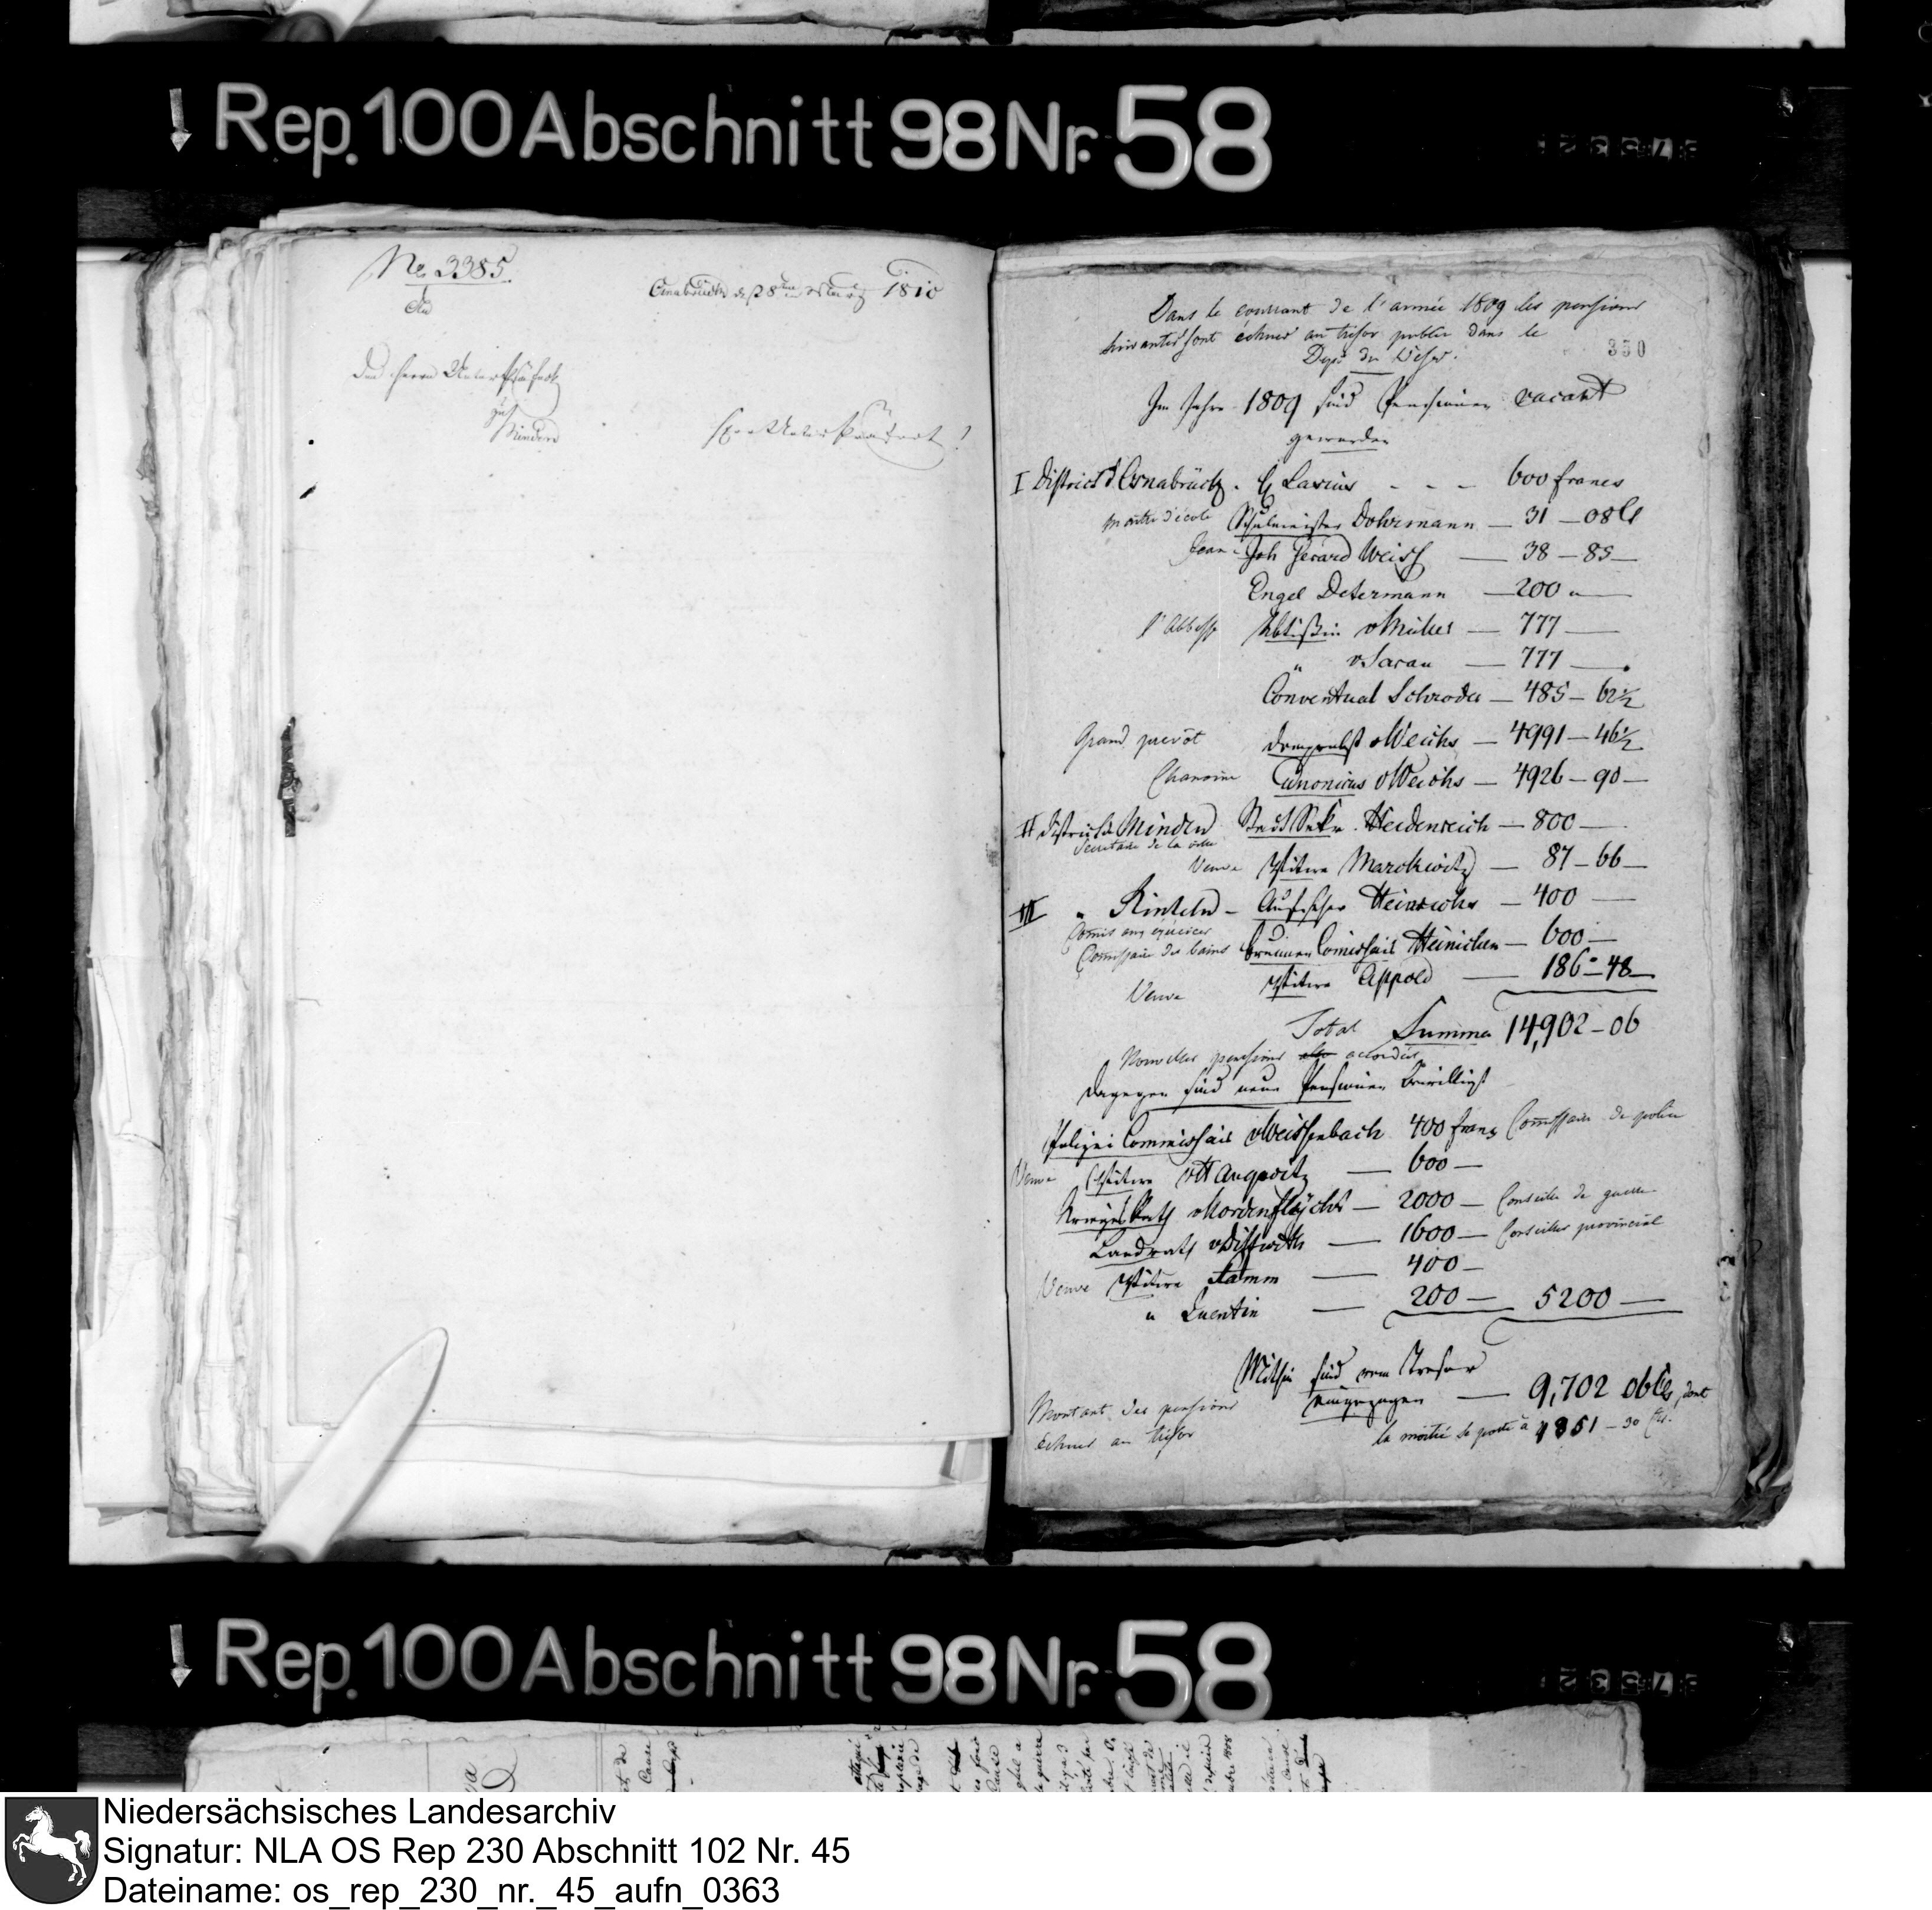 Rep. 100 Abschnitt 98 Nr. 58
No 3385.
An
Osnabrück d 28ten März 1810
den Herrn Unterpräfect
zu
Minden
Herr Unterpräfect!
Dans le courant de l'année 1809 les pensions
suivantes sont échues au trésor public dans le
Dept du Weser.
350
Im Jahre 1809 sind Pensionen vacant
geworden
I District d'Osnabrück. Lasius - - - 600 francs
Maitre d'école Schulmeister Dohrmann — 31 — 08 Cs
Jean Joh Gerard Weiss — 38 — 85 —
Engel Determann — 200 " —
l'Abbesse Abtißin vMüller — 777 —
" vSacau — 777 —
Conventual Schroder — 485 — 62½
Grand prevôt Domprobst vWeichs — 4991 — 46½
Chanoine Canonicus vWeichs — 4926 — 90 —
II District de Minden Stadt Sekr. Heidenreich — 800 —
Secretaire de la ville
Veuve Witwe Marckwitz — 87 — 66 —
III " Rinteln — Aufseher Heinrichs — 400 —
Commis aux
Commissaire des bains Brunnen Comissair Heinichen — 600 —
Veuve Witwe Appold — 186 — 48 —
Total Summa 14,902 — 06
Nouvelles pensions accordées
Dagegen sind neue Pensionen bewilligt
Polizei Commissair vWeissenbach 400 franz Commissaire de police
Veuve Witwe vHaugwitz — 600 —
Kriegs Rath vNordenflycht — 2000 — Conseiller de guerre
Landrath vDitfurth — 1600 — Conseiller provincial
Veuve Witwe Stamm — 400 —
" Quentin — 200 — 5200 —
Mithin sind vom Tresor
eingezogen — 9,702 06 Cs, dont
Montant des pensions
échues au trésor
la moitié se porte à 4851 — 30 Cs.
Rep. 100 Abschnitt 98 Nr. 58
Niedersächsisches Landesarchiv
Signatur: NLA OS Rep 230 Abschnitt 102 Nr. 45
Dateiname: os_rep_230_nr._45_aufn_0363